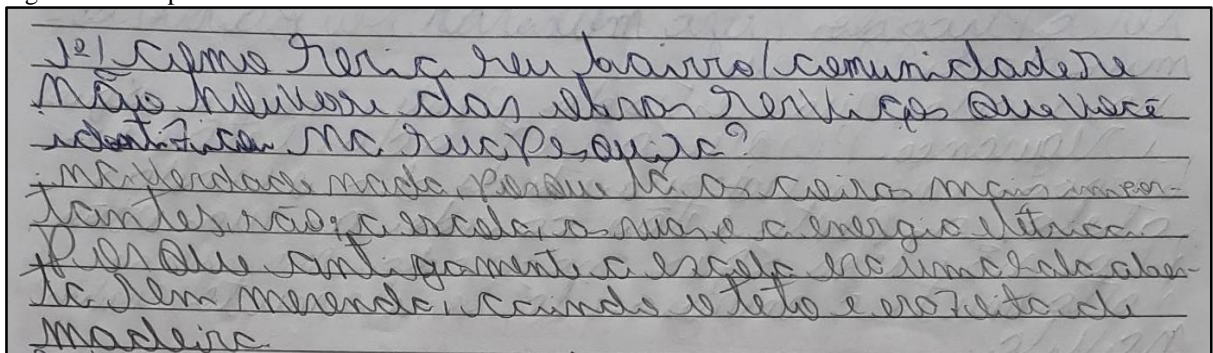 1º) Como seria seu bairro/comunidade se
não houvesse das obras serviços que você
identificou na sua pesquisa?
na verdade nada, porque lá as coisas mais impor-
tantes, são: a escola, as ruas, e a energia elétrica.
Porque antigamente a escola era uma sala aber-
ta sem merenda, caindo o teto e era feita de
madeira.